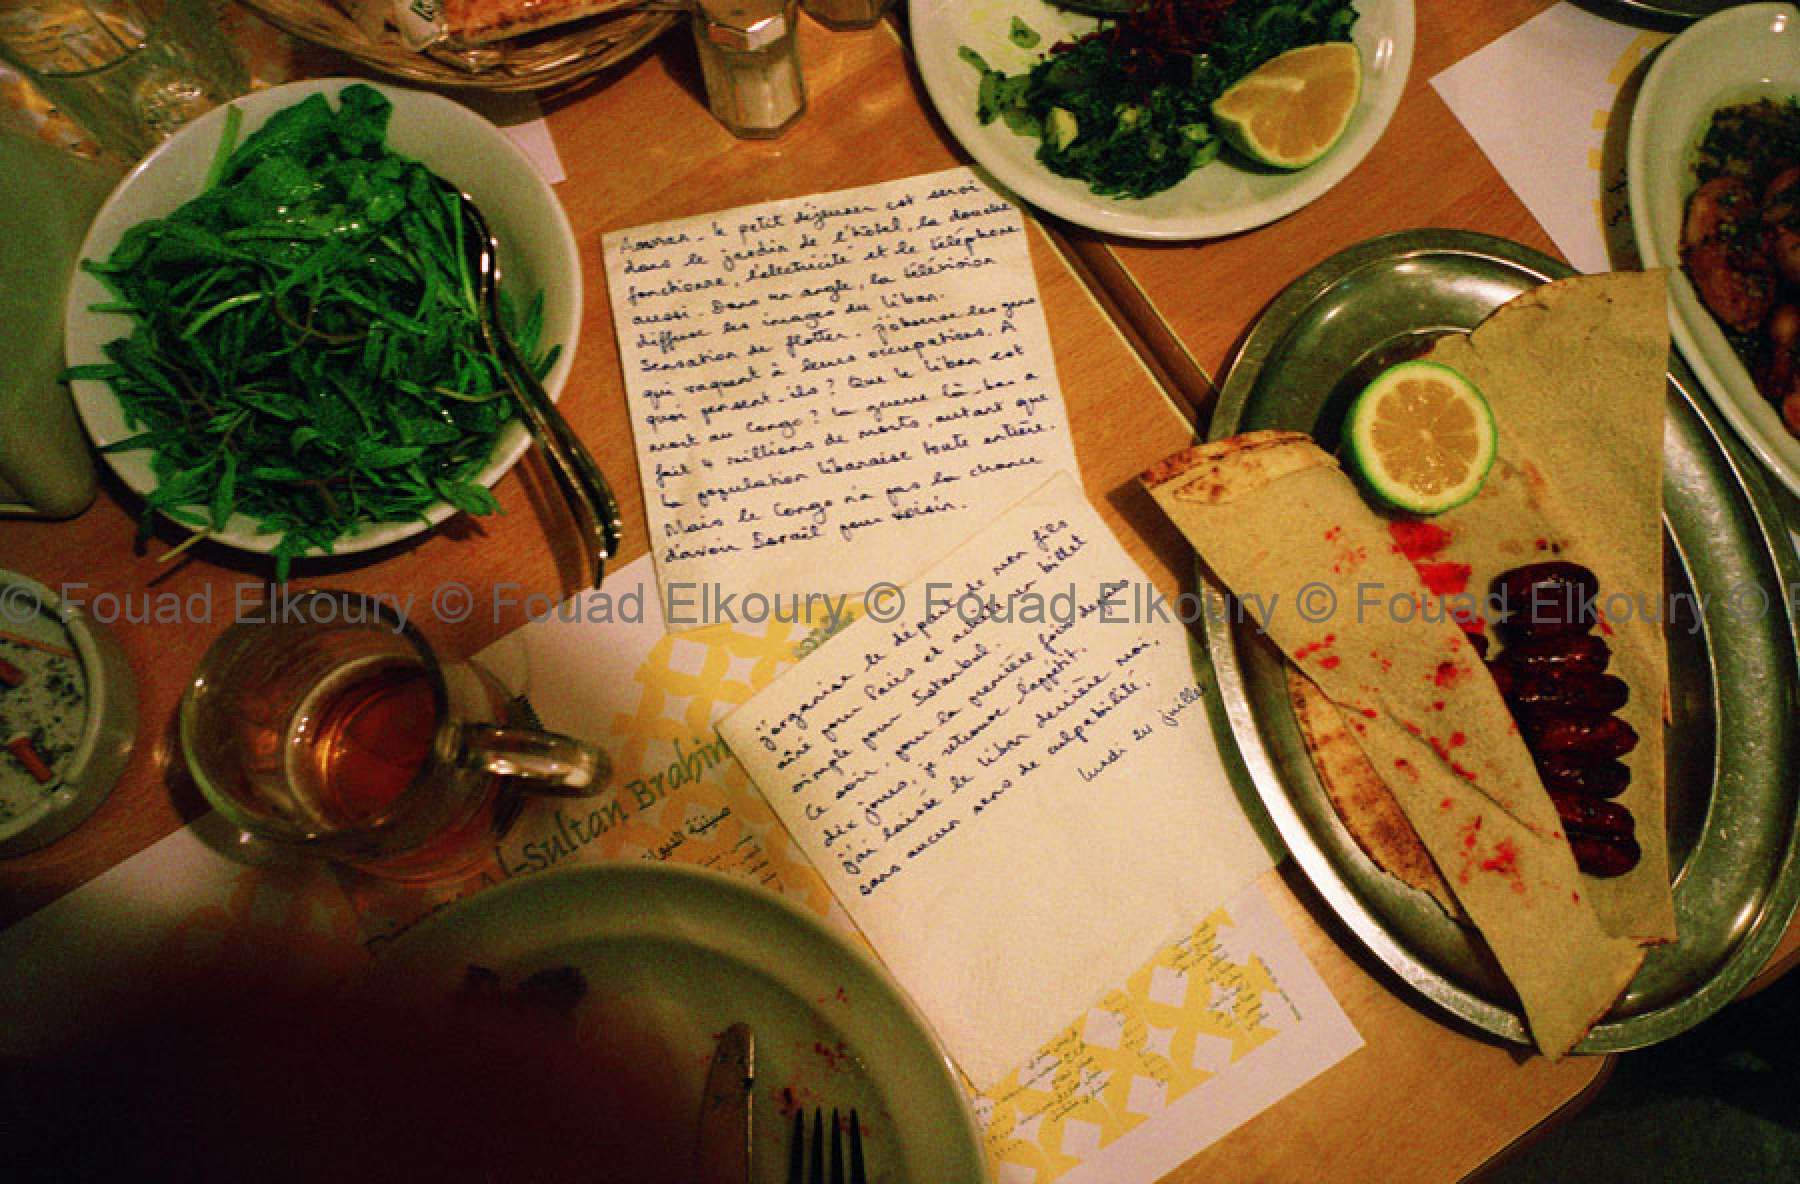 Amman - le petit déjeuner est servi
dans le jardin de l'hôtel, la douche
fonctionne, l'électricité et le téléphone
aussi. Dans un angle, la télévision
diffuse les images du Liban.
Sensation de flotter. J'observe les gens
qui vaquent à leurs occupations. À
quoi pensent-ils ? Que le Liban est
mort au Congo ? La guerre là-bas a
fait 4 millions de morts, autant que
la population libanaise toute entière.
Mais le Congo n'a pas la chance
d'avoir Israël pour voisin.
J'organise le départ de mon fils
aîné pour Paris et achète un billet
simple pour Istanbul.
Ce soir, pour la première fois depuis
dix jours, je retrouve l'appétit.
J'ai laissé le Liban derrière moi,
sans aucun sens de culpabilité.
lundi 24 juillet
l-Sultan Brahim
© Fouad Elkoury © Fouad Elkoury © Fouad Elkoury © Fouad Elkoury © F